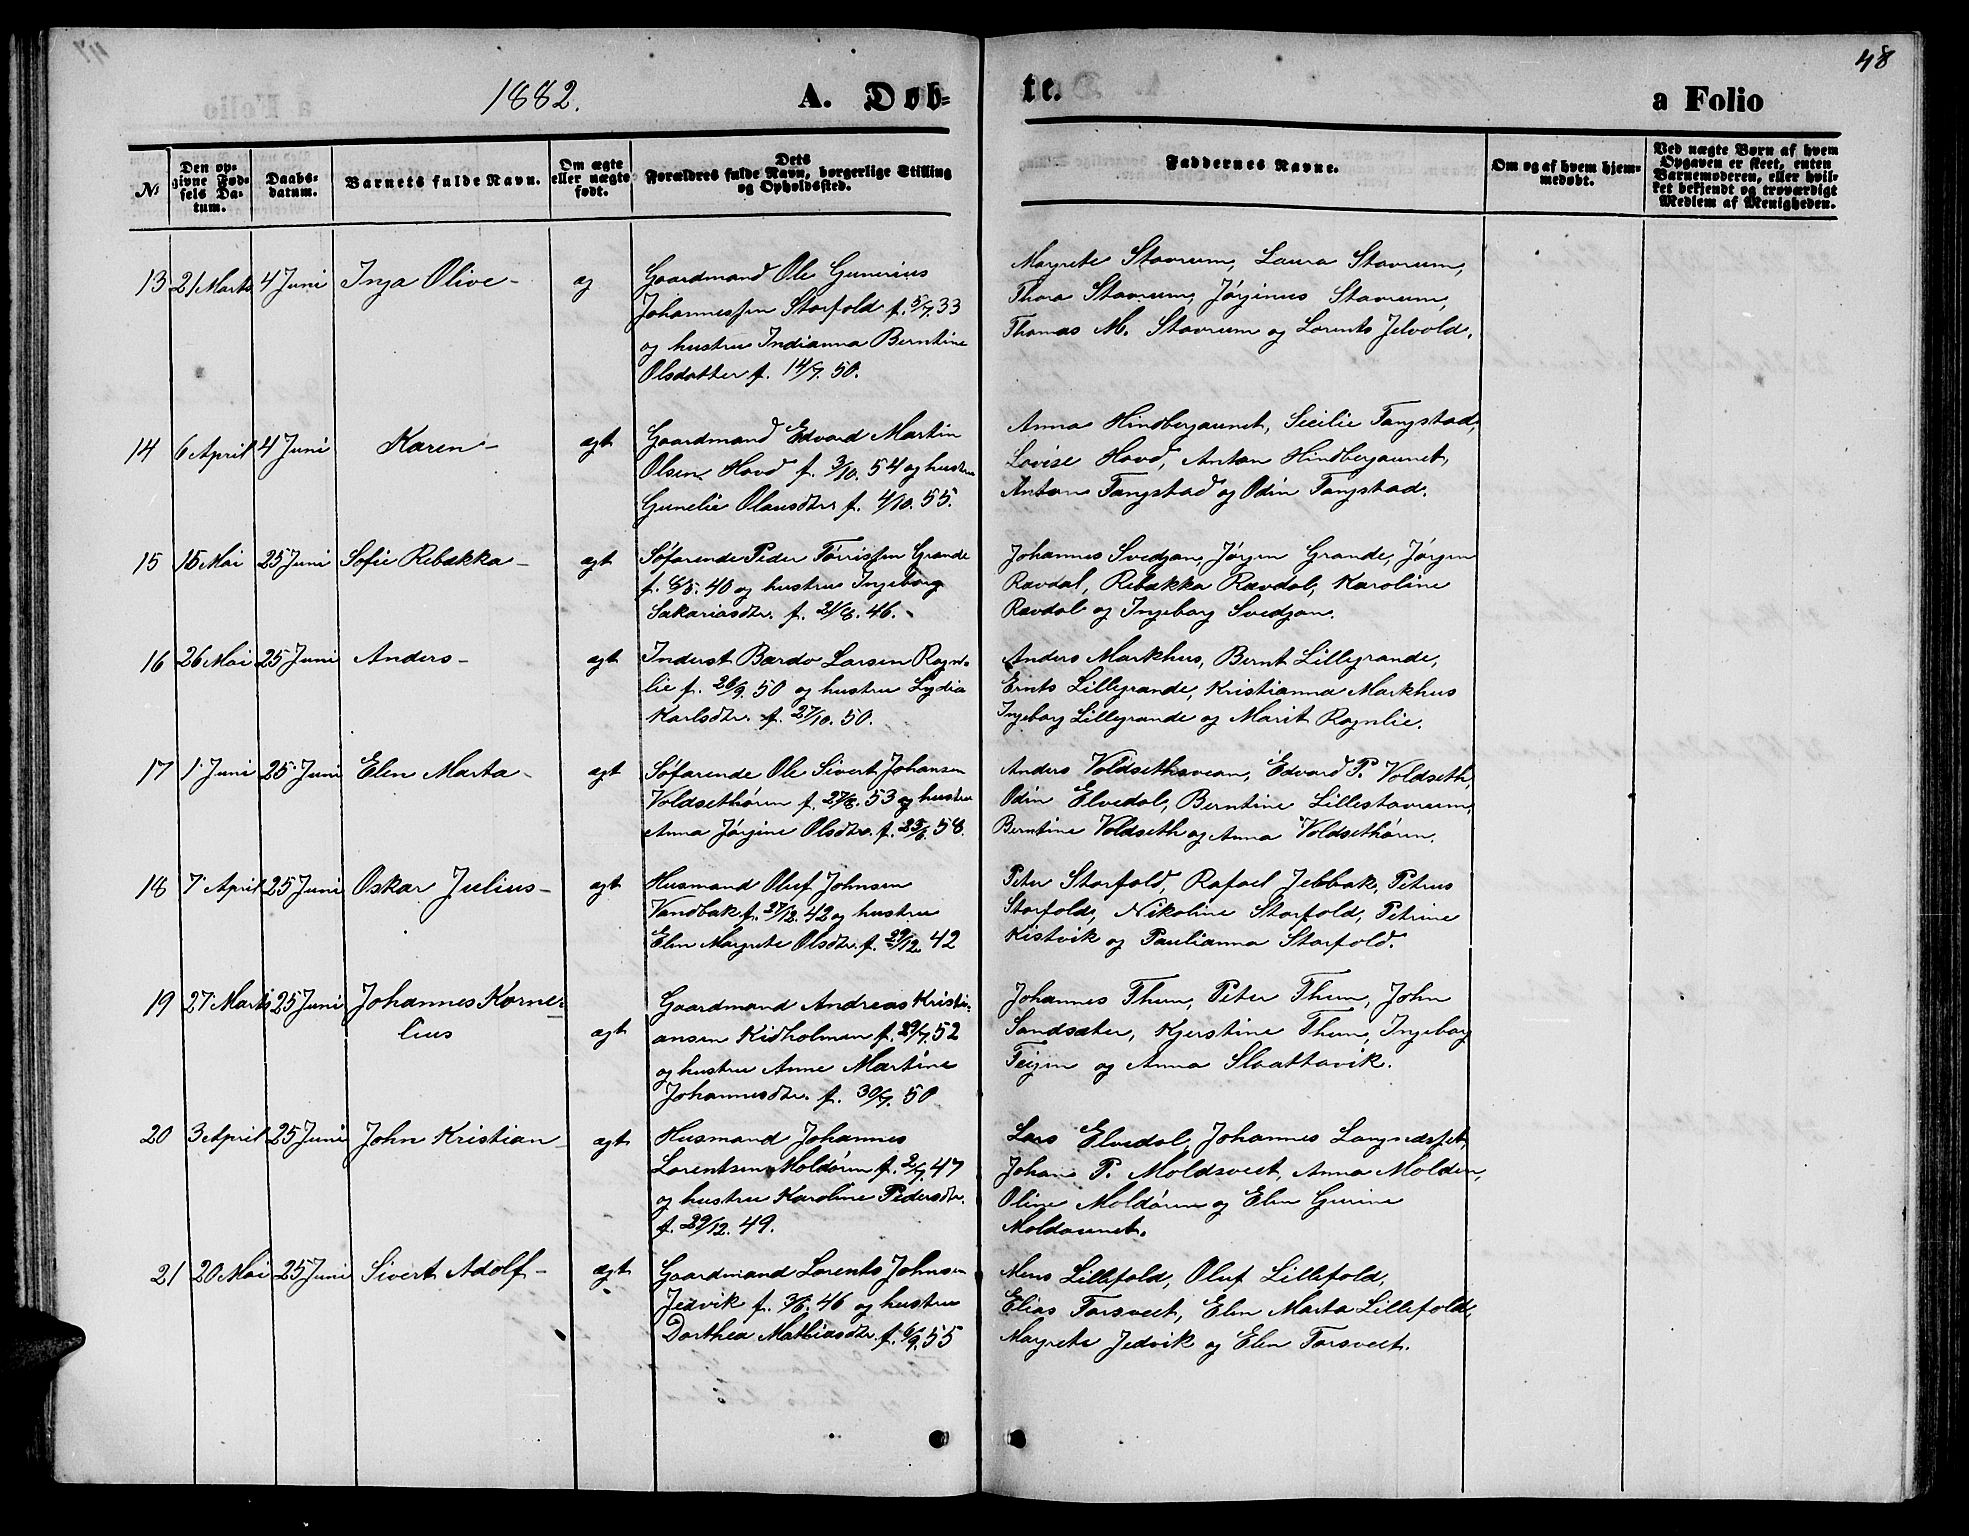 48
1882. A. Døb-
te. a Folio
№
Den op-
givne Fød-
sels Da-
tum.
Daabs-
datum.
Barnets fulde Navn.
Om ægte
eller uægte
født.
Dets
Forældres fulde Navn, borgerlige Stilling
og Opholdssted.
Faddernes Navne.
Om og af hvem hjem-
medøbt.
Ved uægte Børn af hvem
Opgaven er skeet, enten
Barnemoderen, eller hvil-
ket bekjendt og troværdigt
Medlem af Menigheden.
13 21 Marts 4 Juni Inga Olive - æg
Gaardmand Ole Gunerius
Johannessen Storfold f. 5/7. 33
og hustru Indianna Berntine
Olsdatter f. 14/7. 50.
Margrete Stavrum, Laura Stavrum,
Thora Stavrum, Jørginus Stavrum,
Thomas M. Stavrum og Lorents Jelvold.
14 6 April 4 Juni Karen - ægt
Gaardmand Edvard Martin
Olsen Hovd f. 3/10. 54 og hustru
Gunelie Olausdtr. f. 4/10. 55.
Anna Hindbergaunet, Secilie Tangstad,
Lovise Hovd, Anton Hindbergaunet,
Anton Tangstad og Odin Tangstad.
15 15 Mai 25 Juni Sofie Rebækka - ægt
Søfarende Peder Tørrissen Grande
f. 6/5. 40 og hustru Ingeborg
Sakariasdtr. f. 21/8. 46.
Johannes Svedjan, Jørgen Grande, Jørgen
Rævdal, Rebækka Rævdal, Karoline
Rævdal og Ingeborg Svedjan.
16 26 Mai 25 Juni Anders - ægt
Inderst Bardo Larsen Rogn-
lie f. 26/9. 50 og hustru Lydia
Karlsdtr. f. 27/10. 50.
Anders Markhus, Bernt Lillegrande,
Ernts Lillegrande, Kristianna Markhus
Ingeborg Lillegrande og Marit Rognlie.
17 1 Juni 25 Juni Elen Marta - ægt
Søfarende Ole Sivert Johansen
Voldsethøren f. 27/8. 53 og hustru
Anna Jørgine Olsdtr. f. 25/6. 58.
Anders Voldsethaveian, Edvard P. Voldseth,
Odin Elvedal, Berntine Lillestavrum,
Berntine Voldseth og Anna Voldsethøren.
18 7 April 25 Juni Oskar Julius - ægt
Husmand Oluf Johnsen
Vandbak f. 27/12. 42 og hustru
Elen Margrete Olsdtr. f. 29/12. 42
Peter Storfold, Rafael Jebbak, Petrus
Storfold, Nikoline Storfold, Petrine
Kistvik og Paulianna Storfold.
19 27 Marts 25 Juni Johannes Korne-
lius ægt
Gaardmand Andreas Kristi-
ansen Kidholman f. 29/7. 52
og hustru Anne Martine
Johannesdtr. f. 30/7. 50
Johannes Thun, Peter Thun, John
Sandsæter, Kjerstine Thun, Ingeborg
Teigen og Anna Slaattavik.
20 3 April 25 Juni John Kristian - ægt
Husmand Johannes
Lorentsen Moldøren f. 2/7. 47
og hustru Karoline Pedersdtr.
f. 29/12. 49.
Lars Elvedal, Johannes
Johan P. Moldsveet, Anna Molden,
Oline Moldøren og Elen Gurine
Moldaunet.
21 20 Mai 25 Juni Sivert Adolf - ægt
Gaardmand Lorents Johnsen
Jedvik f. 3/6. 46 og hustru
Dorthea Mathiasdtr. f. 6/9. 55
Mens Lillefold, Oluf Lillefold,
Elias Forsveet, Elen Marta Lillefold,
Margrete Jedvik og Elen Forsveet.